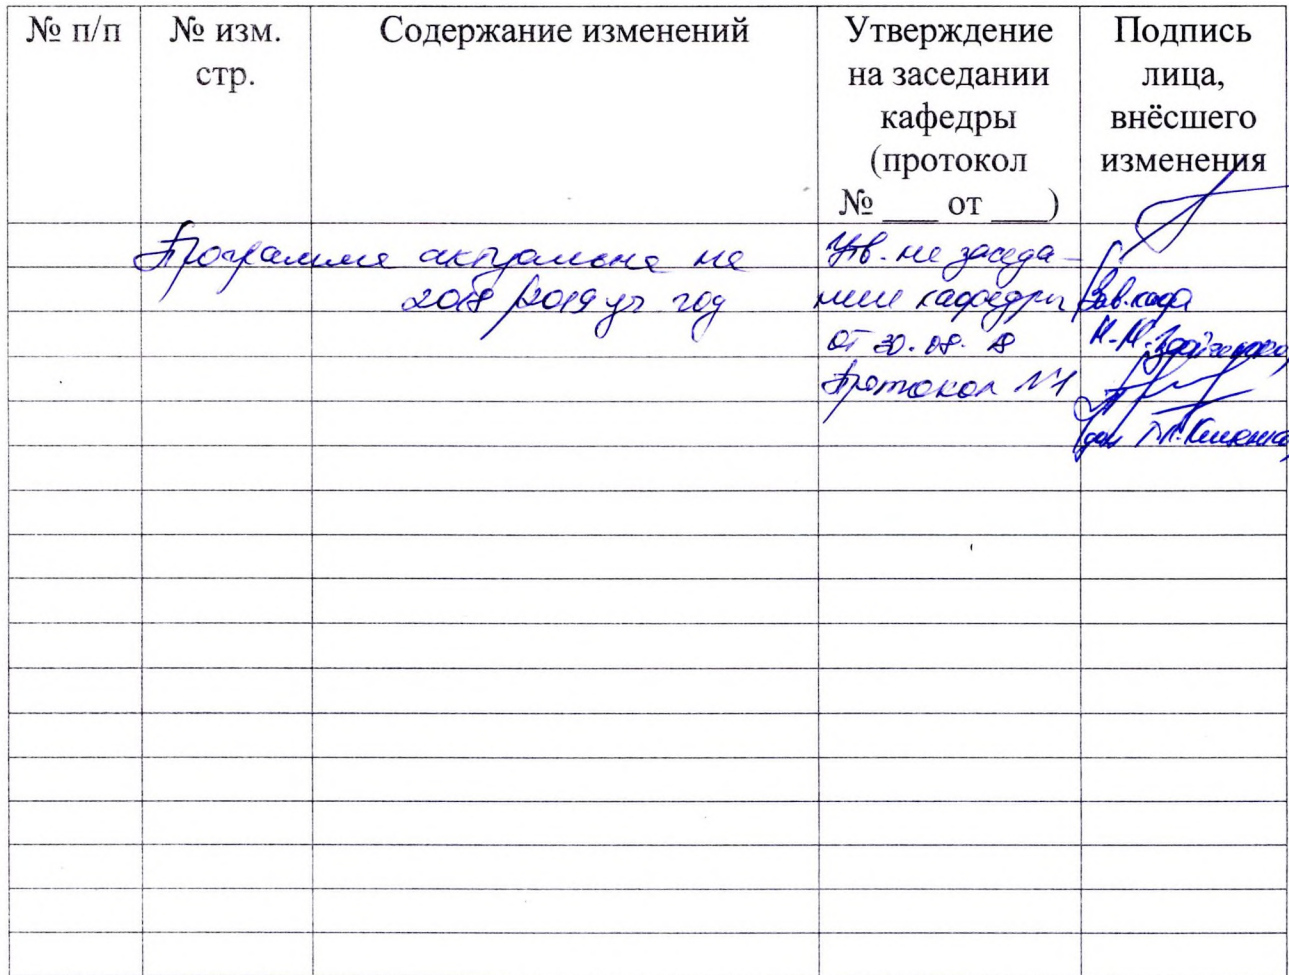 № п/п
№ изм.
стр.
Содержание изменений
Утверждение
на заседании
кафедры
(протокол
№ ___ от ___)
Подпись
лица,
внёсшего
изменения
Программа актуальна на
2018/2019 уч год
Утв. на заседа-
нии кафедры
от 30.08.18
Протокол №1
Зав. каф